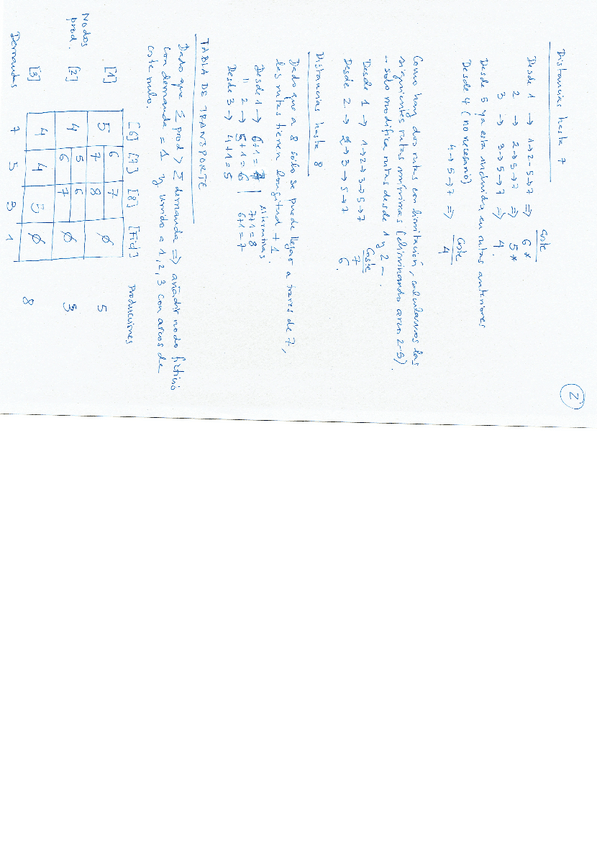 2
Distancias hasta 7
Coste
Desde 1 → 1→2→5→7 ⇒ 6 *
2 → 2→5→7 ⇒ 5 *
3 → 3→5→7 ⇒ 4.
Desde 5 ya está incluida en rutas anteriores
Desde 4 (no necesario) Coste
4→5→7 ⇒ 4
Como hay dos rutas con limitación, calculamos las
siguientes rutas mínimas (eliminando arco 2-5).
– solo modifica rutas desde 1 y 2 –.
Coste
Desde 1 → 1→2→3→5→7 7
Desde 2 → 2→3→5→7 6.
Distancias hasta 8
Dado que a 8 sólo se puede llegar a través de 7,
las rutas tienen longitud + 1.
Desde 1 → 6+1=7 7+1=8
" 2 → 5+1=6 6+1=7
Desde 3 → 4+1=5
TABLA DE TRANSPORTE
Dado que Σ prod > Σ demanda ⇒ añadir nodo ficticio
con demanda = 1 y unido a 1, 2, 3 con arcos de
coste nulo.
[6] [7] [8] [Fict] Producciones
[1] 5 6 7 7 8 ∅ 5
Nodos
prod. [2] 4 5 6 6 7 ∅ 3
[3] 4 4 5 ∅ 8
Demandas 7 5 3 1